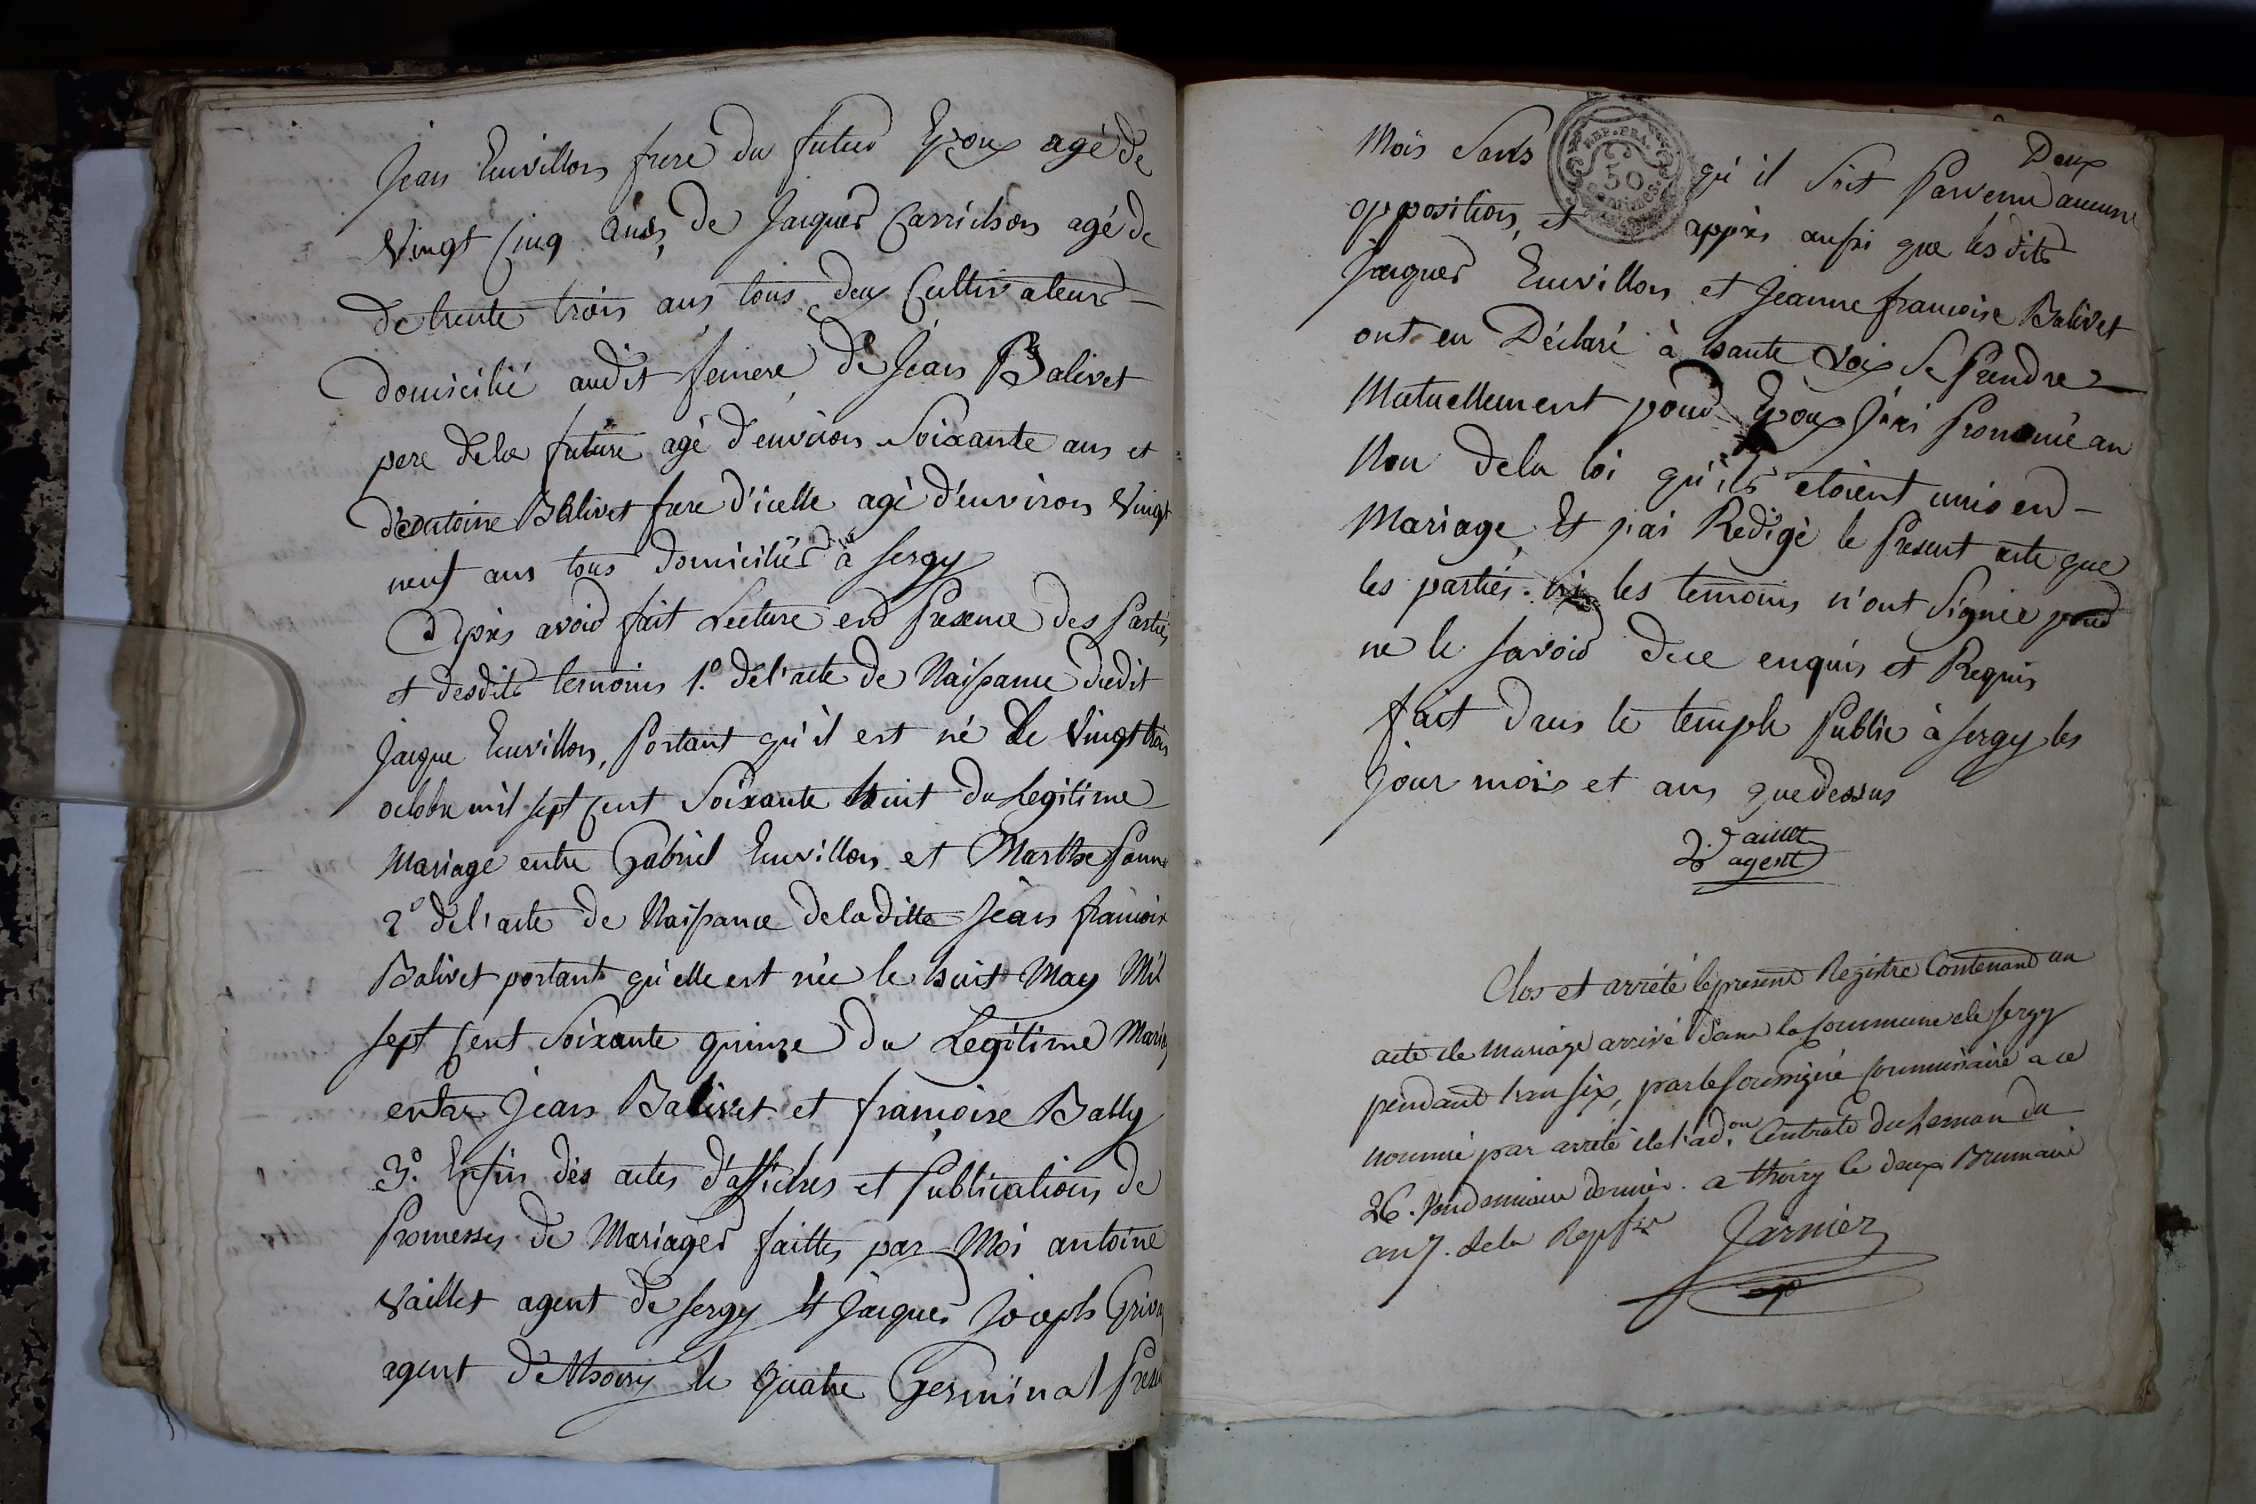 Jean Emvillon frere du futur Epoux agé de
Vingt Cinq Ans, de Jacques Carrichon agé de
de trente trois ans tous deux Cultivateurs
domicilié audit de Jean Balivet
pere dela future agé d'environ Soixante ans et
d'antoine Balivet frere d'icelle agé d'environ Vingt
neuf ans tous domiciliés à Sergy
Après avoir fait Lecture en Presence des Parties
et desdits temoins 1.º de l'acte de Naissance dudit
Jacque Emvillon, Portant qu'il est né Le Vingt trois
octobre mil sept Cent Soixante huit du Legitime
Mariage entre Gabriel Emvillon et Marthe
2º de l'acte de Naissance deladitte Jean francoise
Balivet portant qu'elle est née le huit May Mil
sept Cent Soixante quinze du Legitime
entre Jean Balivet et françoise Bally
3.º Enfin des actes d'affiches et Publications de
Promesses de Mariages faittes par Moi antoine
Vaillet agent de Sergy et Jacques Joseph
agent de Thoiry le quatre Germinal
Deux
Mois Sans qu'il Soit Parvenu aucune
REP. FRA.
50
Centimes
opposition, et apprès aussi que lesdits
Jacques Emvillon et Jeanne francoise Balivet
ont eu Déclaré à haute Voix Se Prendre
Mutuellement pour Epoux J'ai Prononcé au
Nom dela loi qu'ils etoient unis en
Mariage, Et j'ai Redigé le Present acte que
les parties ni les temoins n'ont Signée pour
ne le Savoir de ce enquis et Requis
fait dans le temple Public à Sergy les
jour mois et ans que dessus
Vaillet
agent
Clos et arrété le present Registre Contenant un
acte de Mariage arrivé dans la Commune de Sergy
pendant l'an six, par le soussigné Commissaire a ce
nommé par arreté de l'ad.on Centrale du Leman du
26. Vendemiaire dernier. a thoiry le deux Brumaire
an 7. dela Rep. Jarnier